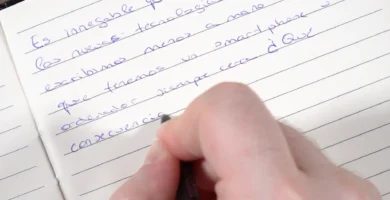 Es innegable q
las nuevas tecnologías
escribimos menos a mano
que tenemos un smartphone u
ordenador siempre cerca ¿Qué
consecuencias